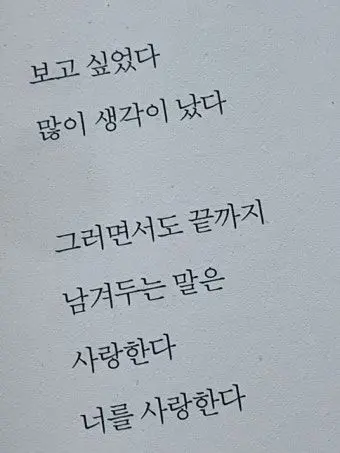 보고 싶었다
많이 생각이 났다
그러면서도 끝까지
남겨두는 말은
사랑한다
너를 사랑한다